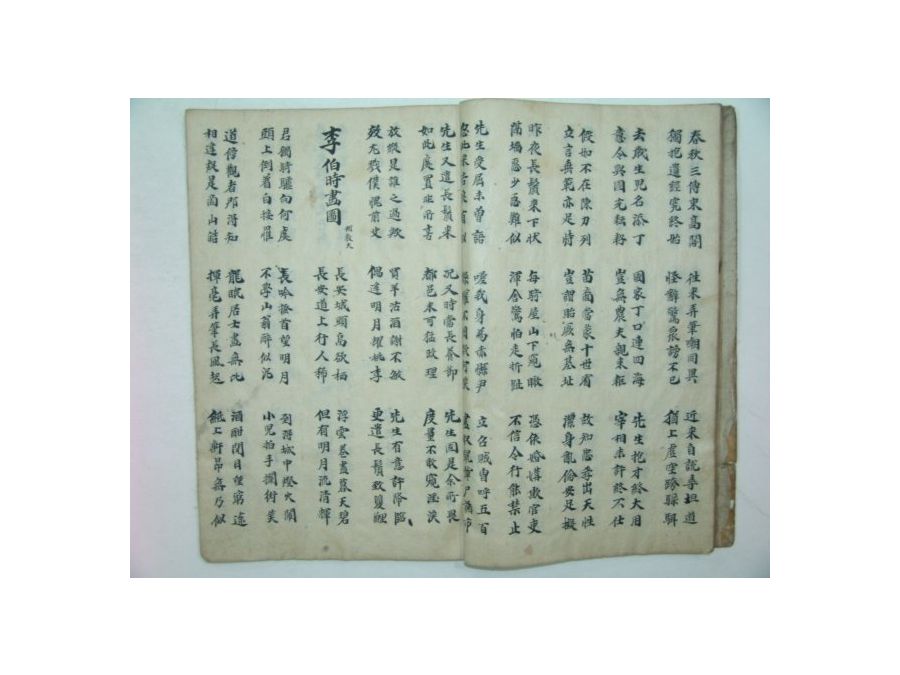 春秋三傳束高閣
獨抱遺經究終始
往來弄筆嘲同異
怪辭驚衆謗不已
近來自說尋坦道
猶上虛空跨騄駬
去歲生兒名添丁
意令與國充耘耔
國家丁口連四海
豈無農夫親耒耜
先生抱才終大用
宰相未許終不仕
假如不在陳力列
立言垂範亦足恃
苗裔當蒙十世宥
豈謂貽厥無基址
故知忠孝出天性
潔身亂倫安足擬
昨夜長鬚來下狀
隔墻惡少惡難似
每騎屋山下窺瞰
渾舍驚怕走折趾
憑依婚媾欺官吏
不信令行能禁止
先生受屈未曾語
忽此來告良有以
嗟我身爲赤縣尹
操權不用欲何俟
立召賊曹呼五百
盡取鼠輩尸諸市
先生又遣長鬚來
如此處置非所喜
況又時當長養節
都邑未可猛政理
先生固是余所畏
度量不敢窺涯涘
放縱是誰之過歟
效尤戮僕愧前史
買羊沽酒謝不敏
偶逢明月耀桃李
先生有意許降臨
更遣長鬚致雙鯉
李伯時畫圖 邢敦夫
長安城頭烏欲栖
長安道上行人稀
浮雲卷盡暮天碧
但有明月流清輝
君獨騎驢向何處
頭上倒着白接䍦
長吟搔首望明月
不學山翁醉似泥
到得城中燈火鬧
小兒拍手攔街笑
道傍觀者那得知
相逢疑是商山皓
龍眠居士畫無比
揮毫弄筆長風起
酒酣閉目望窮途
紙上軒昂無乃似